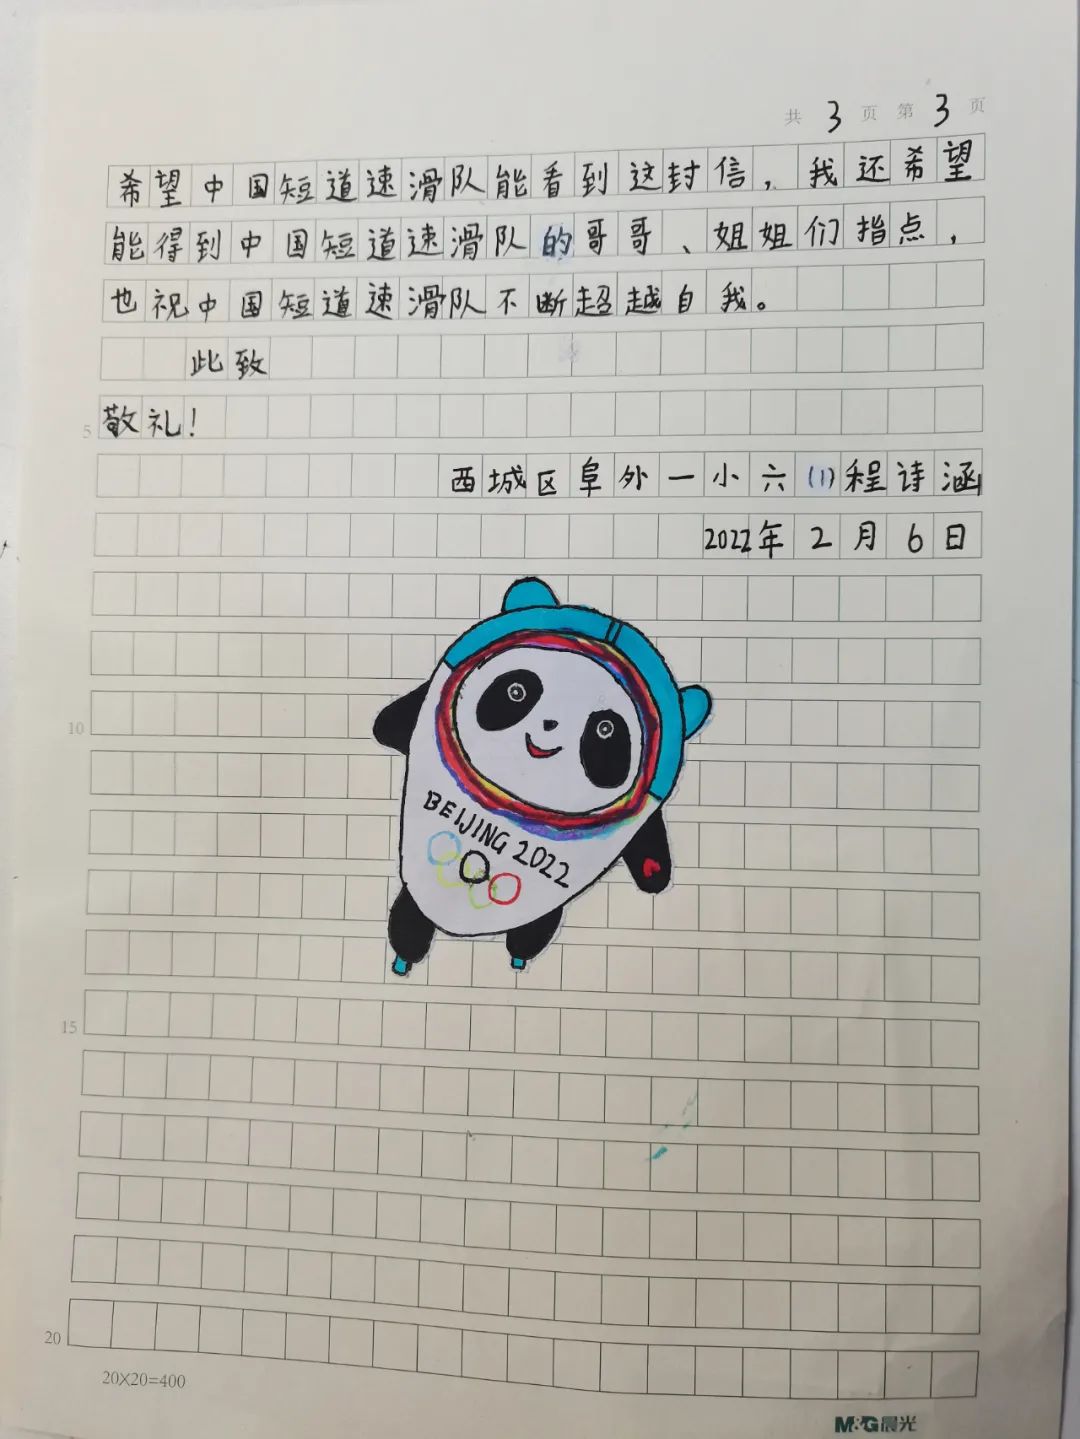 共 3 页 第 3 页
希望中国短道速滑队能看到这封信，我还希望
能得到中国短道速滑队的哥哥、姐姐们指点，
也祝中国短道速滑队不断超越自我。
此致
5 敬礼！
西城区阜外一小六(1)程诗涵
2022年2月6日
10
BEIJING 2022
15
20
20×20=400
M&G晨光